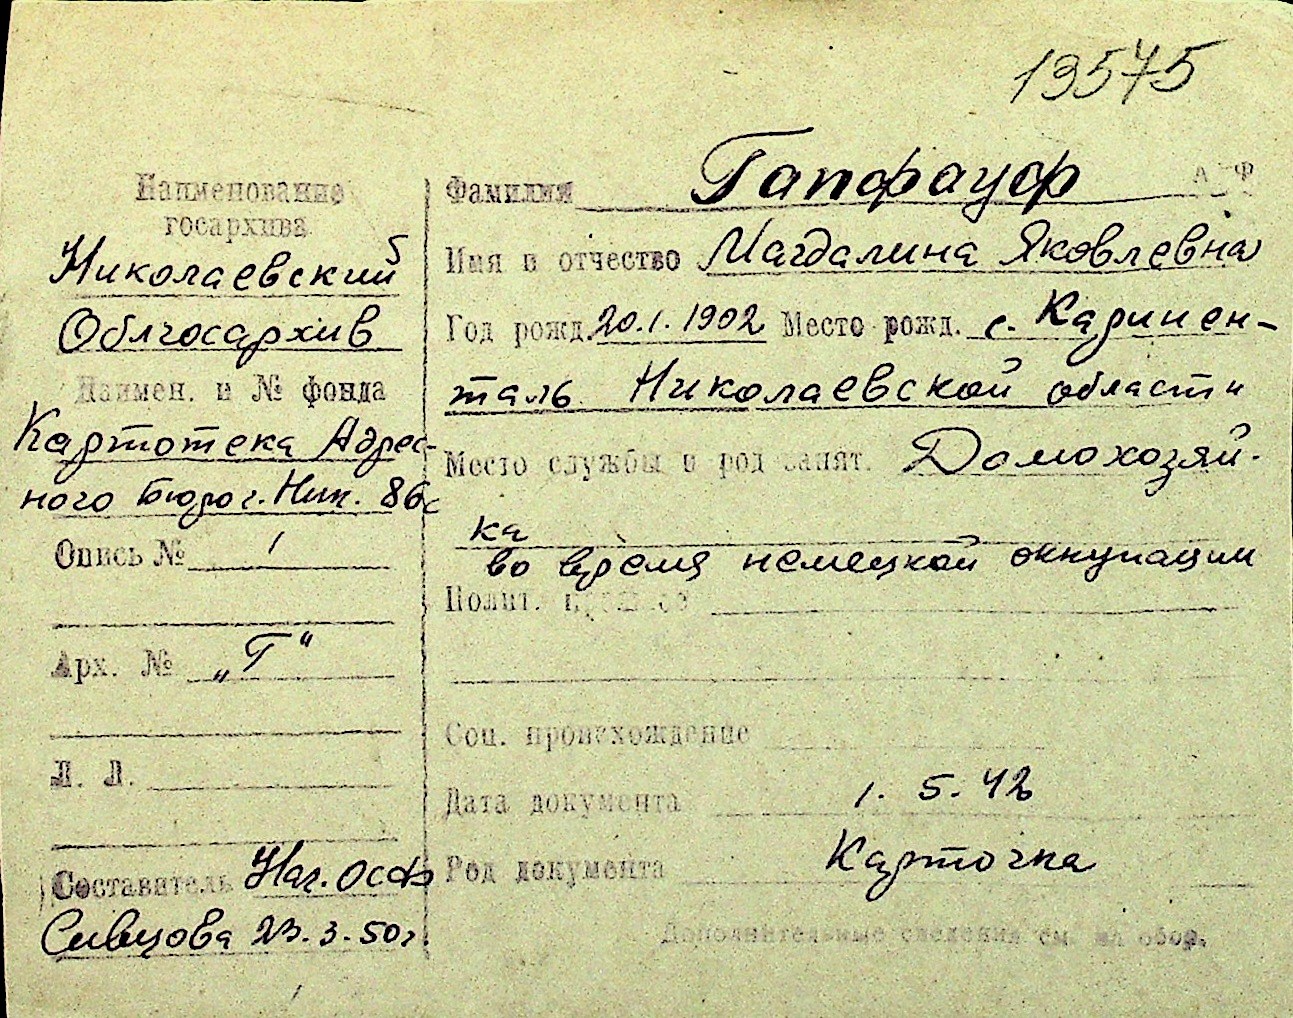 13575
Наименование
госархива
Николаевский
Облгосархив
Наимен. и № фонда
Картотека Адрес-
ного Бюро г. Ник. 86с
Опись № 1
Арх. № „Г"
Л. Л.
Составитель Нач. ОСФ
Сивцова 23.3.50г.
Фамилия Гапфауф А Ф
Имя и отчество Магдалина Яковлевна
Год рожд. 20.1.1902 Место рожд. с. Карлсен-
таль Николаевской области
Место службы и род занят. Домохозяй-
ка
во время немецкой оккупации
Полит.
Соц. происхождение
Дата документа 1. 5. 42
Род документа Карточка
Дополнительные сведения см. на обор.